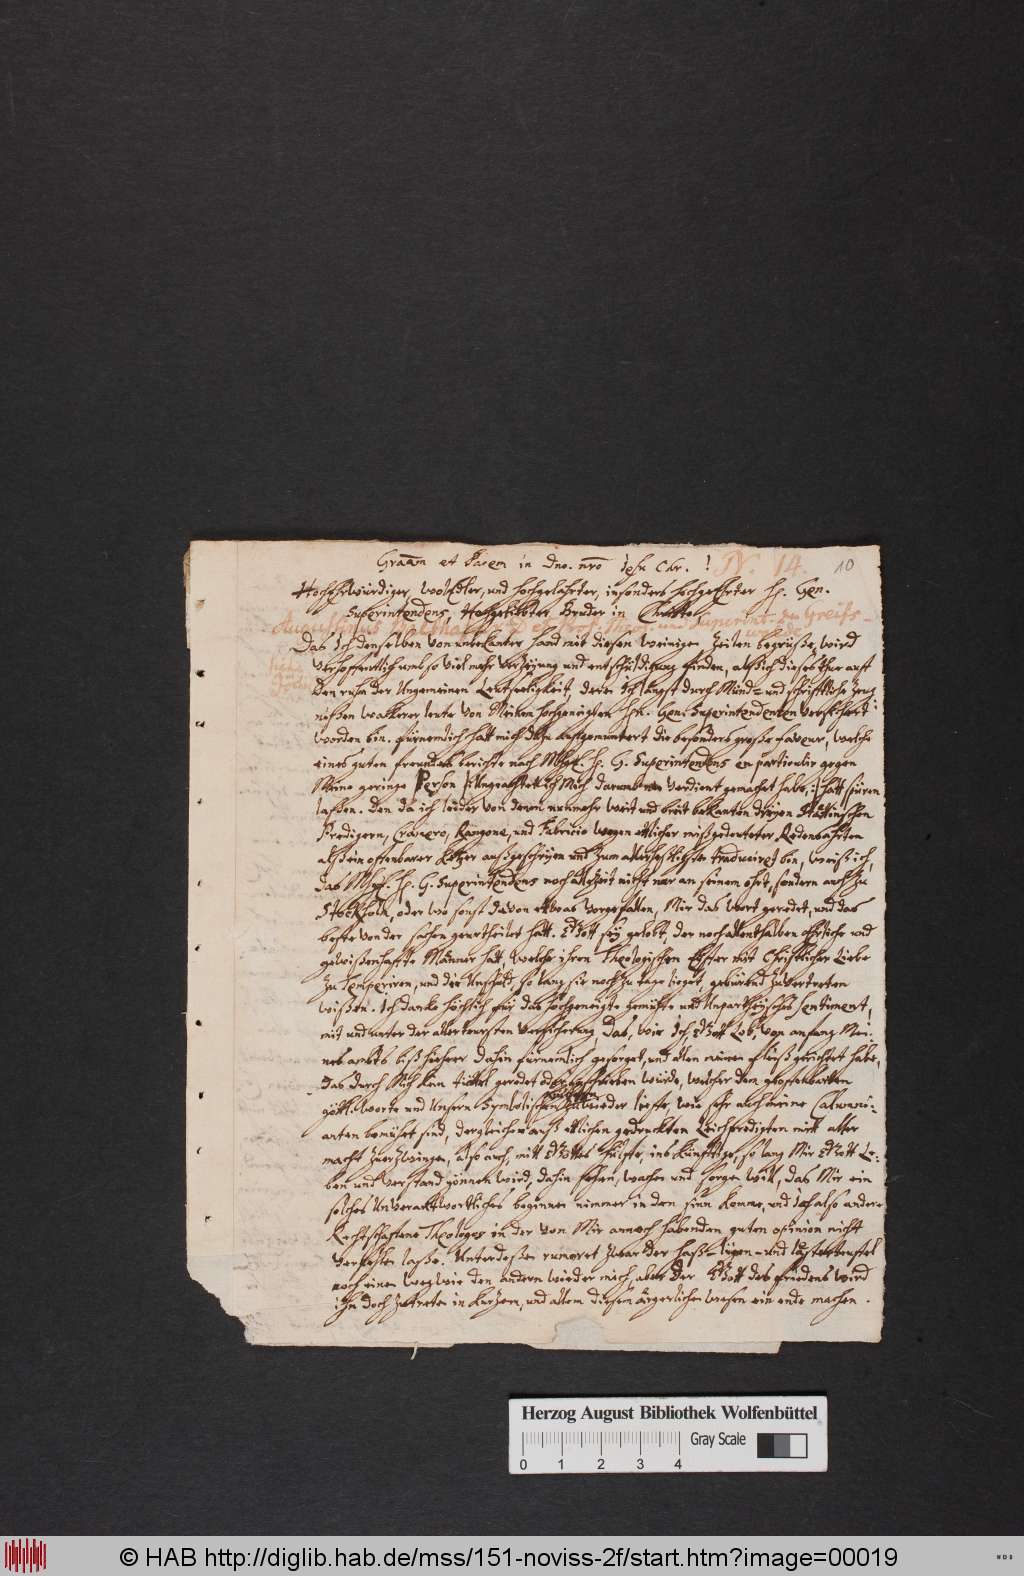 Gratiam et Pacem in Dno. nro Jesu Chr. !
N. 14.
10
HochEhrwürdiger, WohlEdler, und Hochgelahrter, insonders hochgeEhrter H. Gen.
Superintendens, Hochgeliebter Bruder in Christo.
Superint. Greifs-
Das Ich denselben von unbekanter Hand mit diesen wenigen Zeilen begrüße, wird
verhoffentlich umb so viel mehr Verzeyung und entschüldigung finden, als ich dieses thue auff
den ruhm der Ungemeinen Leutseeligkeit, derer Ich längst durch Mund- und schrifftliche Zeug-
nüßen wackerer leute von Meinem hochgeneigten Hn. Gen: Superintendenten versichert
worden bin. fürnemlich hatt mich dazu auffgemuntert die besonders große faveur, welche
eines guten freundes berichte nach MHgl. H. G. Superintendens en particulir gegen
Meine geringe Person /:Ungeachtet Ich Mich darumb nie verdient gemacht habe,:/ hatt spüren
laßen. Den da ich leider von denen nunmehr weit und breit bekanten dreyen Stettinschen
Predigern, Cramero, Rangone, und Fabricio wegen etlicher mißgedeuteter Redensahrten
alß ein offenbarer Ketzer außgeschrien und zum allerheßlichsten traduciret bin, weiß ich,
das MHgl. H. G. Superintendens noch allezeit nicht nur an seinem ohrt, sondern auch zu
Stockholm, oder wo sonst davon etwas vorgefallen, Mir das wort geredet, und das
beste von der sachen geurtheilet hatt. Gott sey gelobt, der noch allenthalben ehrliche und
gewißenhaffte Männer hat, welche ihren Theologischen Eyffer mit Christlicher Liebe
zu temperiren, und die Unschuld, so lang sie noch zu tage lieget, gebürend zuvertreten
wißen. Ich dancke höchlich für das hochgeneigte gemühte und Unpartheyisches sentiment,
mit und unter der allertheursten versicherung, das, wie Ich, Gott Lob, von anfang Mei-
nes ambts biß hieher dahin fürnemlich gesorget, und allen meinen fleiß gerichtet habe,
das durch Mich kein tüttel geredet oder geschrieben würde, welcher dem geoffenbarten
göttl. worte und Unsern Symbolischen büchern zuwieder lieffe, wie sehr auch meine Calumni-
anten bemühet sind, dergleichen auß etlichen gedruckten Leichpredigten mitt aller
macht zuerzwingen, also auch, mitt Gottes Hülffe, ins künfftige, so lang Mir Gott Le-
ben und verstand gönnen wird, dahin sehen, wachen und sorgen will, das Mir ein
solches Unverantwortliches beginnen nimmer in den sinn komme, und Ich also andere
Rechtschaffene Theologos in der von Mir annoch habenden guten opinion nicht
verfehlen laße. Unterdeßen rumoret zwar der haß- lügen- und lästerteuffel
noch einen weg wie den andern wieder mich, aber der Gott des friedens wird
ihn doch zutreten in kurtzem, und allem diesem ärgerlichen wesen ein ende machen.
Herzog August Bibliothek Wolfenbüttel
Gray Scale
0 1 2 3 4
© HAB http://diglib.hab.de/mss/151-noviss-2f/start.htm?image=00019